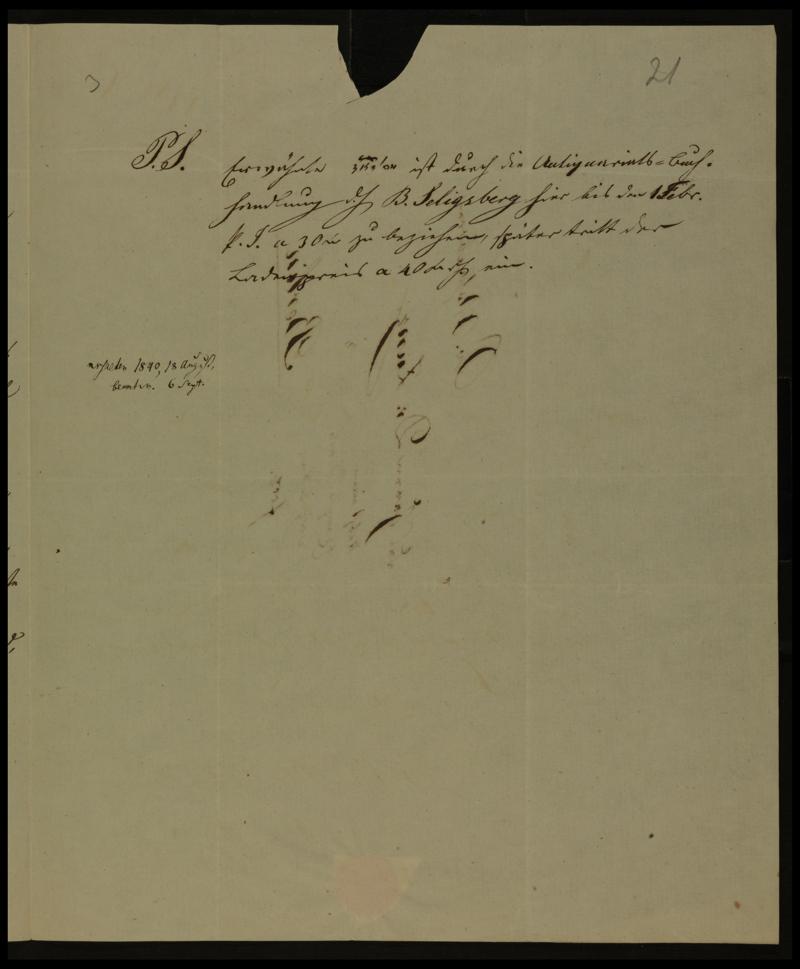 21
P.S. Erwähnte ist durch die Antiquariats=Buch-
handlung des B. Seligsberg hier bis den 1 Febr.
k. J. a 30 zu beziehen, später tritt der
Ladenpreis a 40 ein.
erhalten 1840, 18 August,
beantw. 6 Sept.